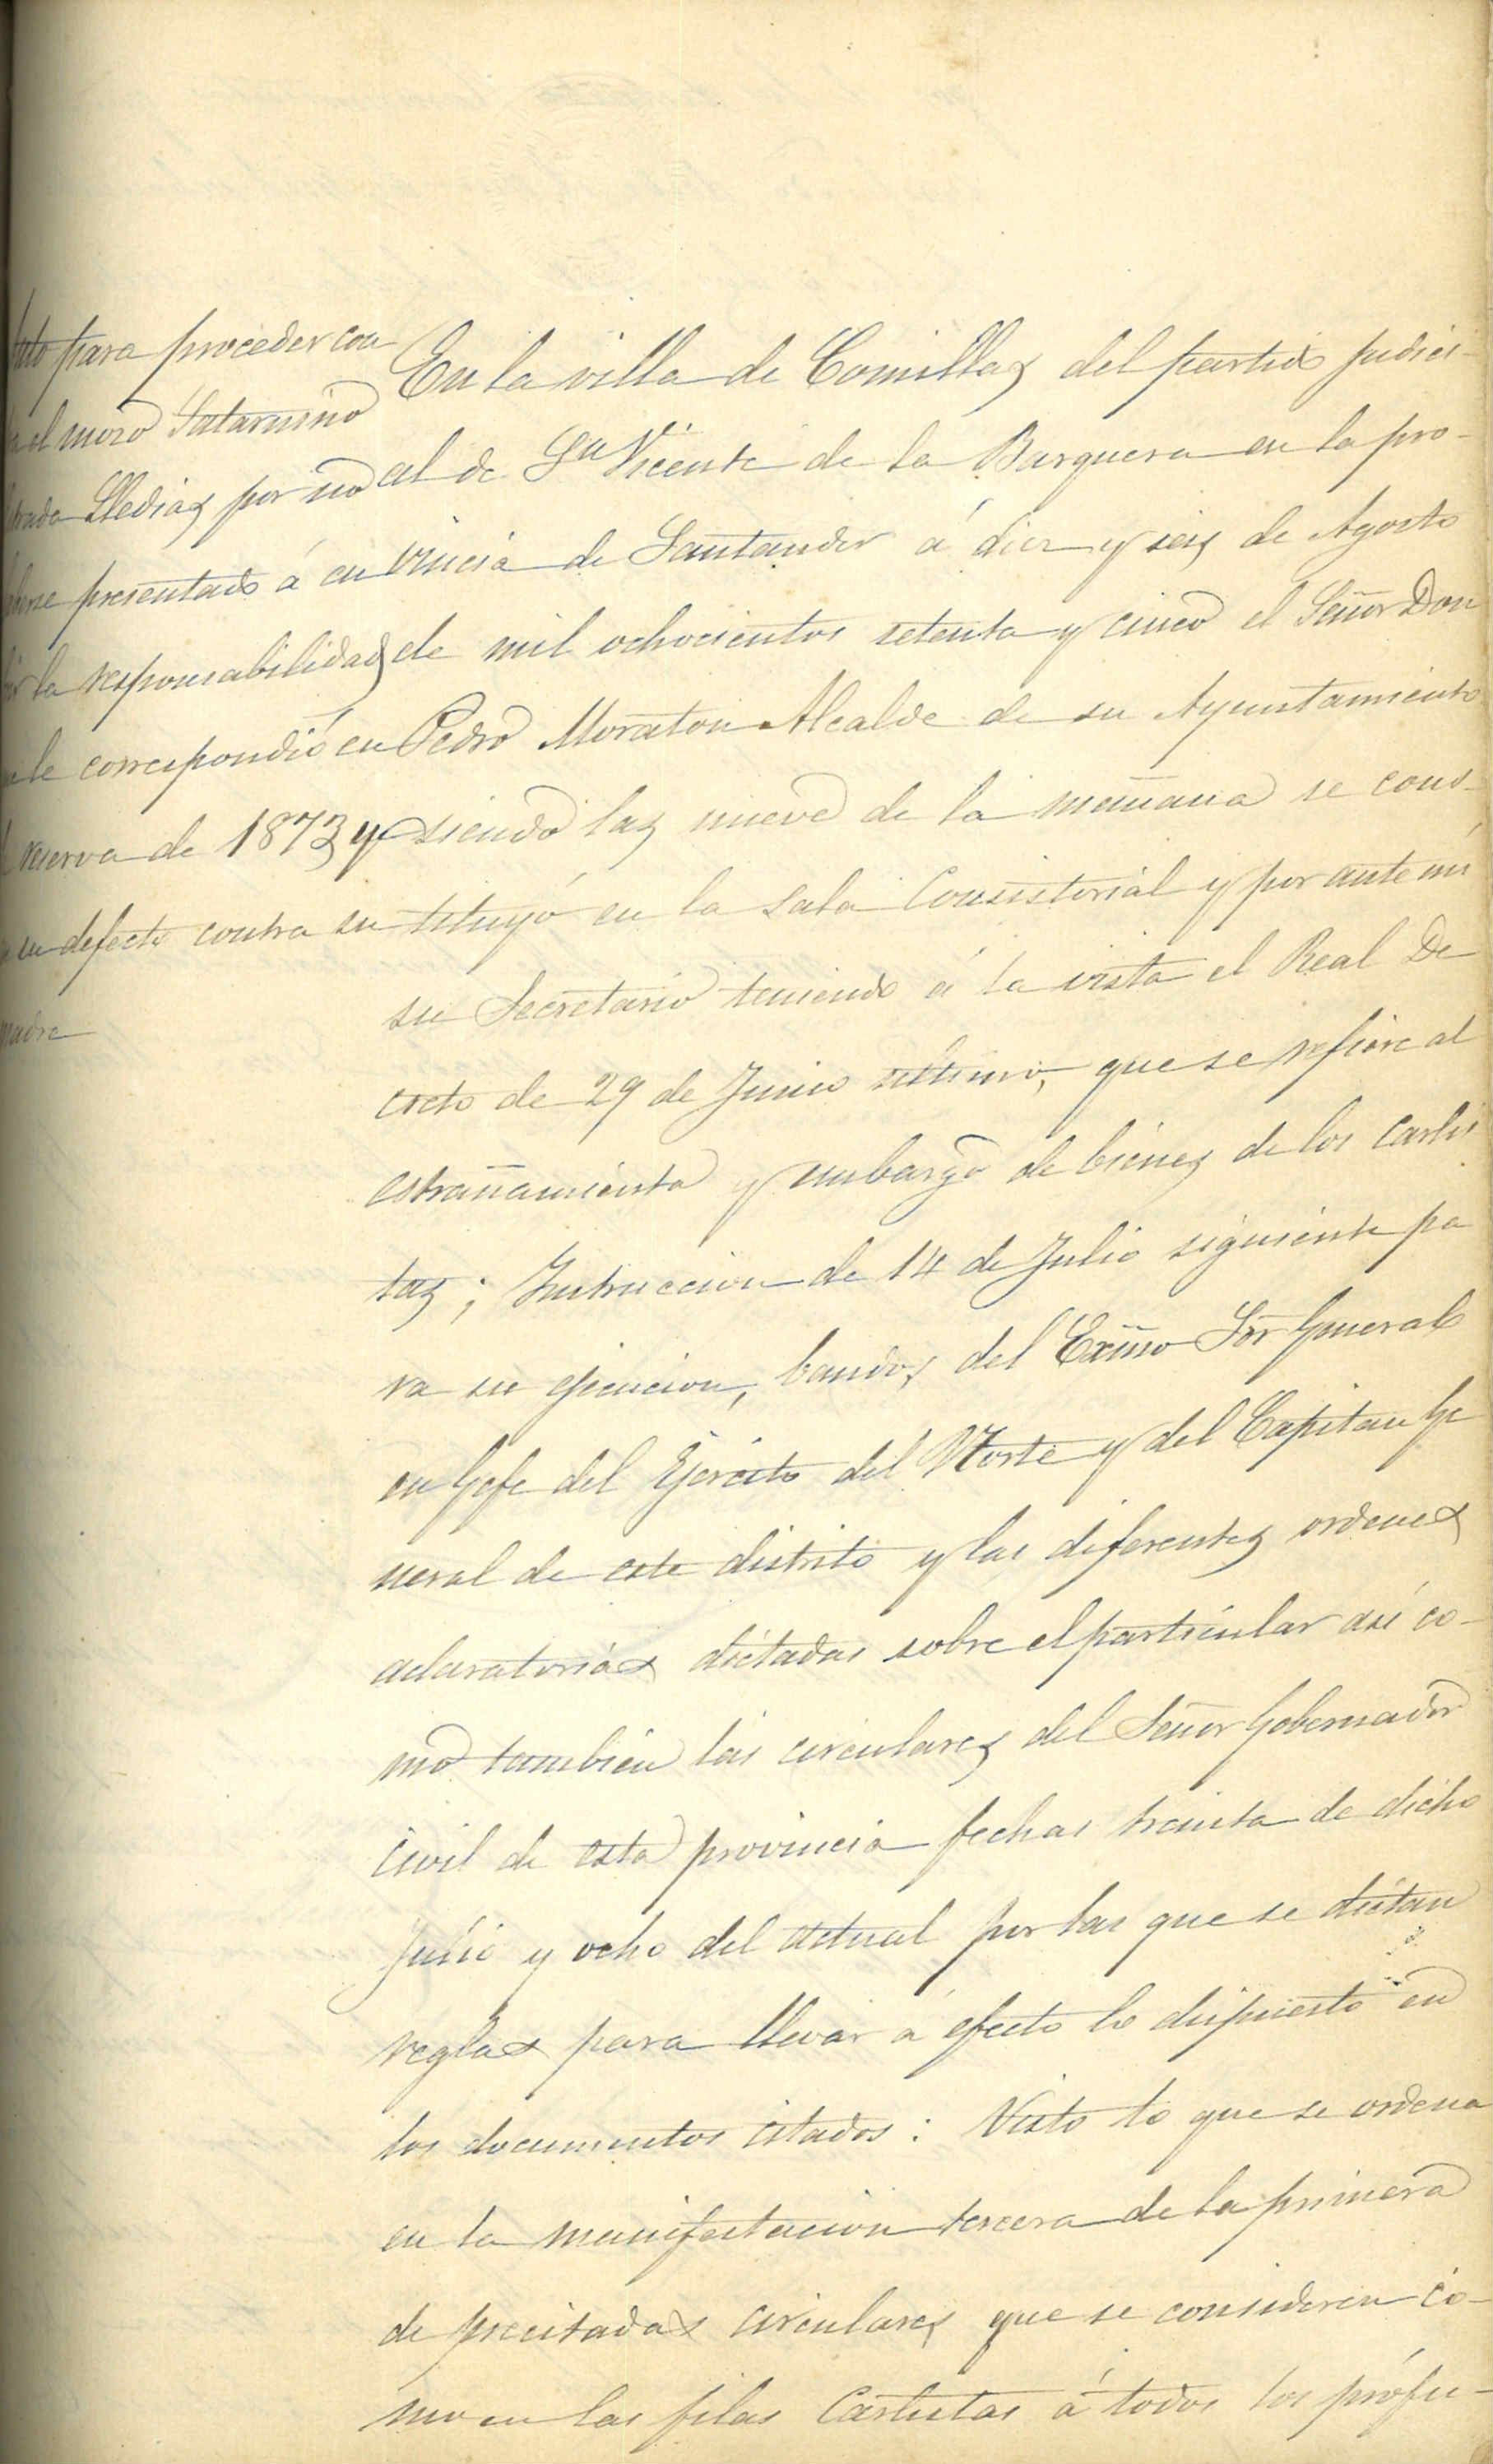 para proceder con
el mozo Saturnino
Lledias por no
presentado á cu
la responsabilidad
le correspondió en
reserva de 1873 y
en defecto contra su
madre
En la villa de Comillas del partido judici-
al de Sn Vicente de la Barquera en la pro-
vincia de Santander á diez y seis de Agosto
de mil ochocientos setenta y cinco el Señor Don
Pedro Moraton Alcalde de su Ayuntamiento
siendo las nueve de la mañana se cons-
tituyó en la sala Consistorial y por ante mi
su Secretario teniendo á la vista el Real De
creto de 29 de Junio último, que se refiere al
estrañamiento y embargo de bienes de los carlis
tas; Instruccion de 14 de Julio siguiente pa
ra su ejecucion, bandos del Exm̃o Sor General
en Gefe del Ejército del Norte y del Capitan Ge
neral de este distrito y las diferentes ordenes
aclaratorias dictadas sobre el particular asi co-
mo tambien las circulares del Señor Gobernador
Civil de esta provincia fechas treinta de dicho
Julio y ocho del actual por las que se dictan
reglas para llevar á efecto lo dispuesto en
los documentos citados: Visto lo que se ordena
en la manifestacion tercera de la primera
de precitadas circulares que se consideren co-
mo en las filas Carlistas á todos los prófu-